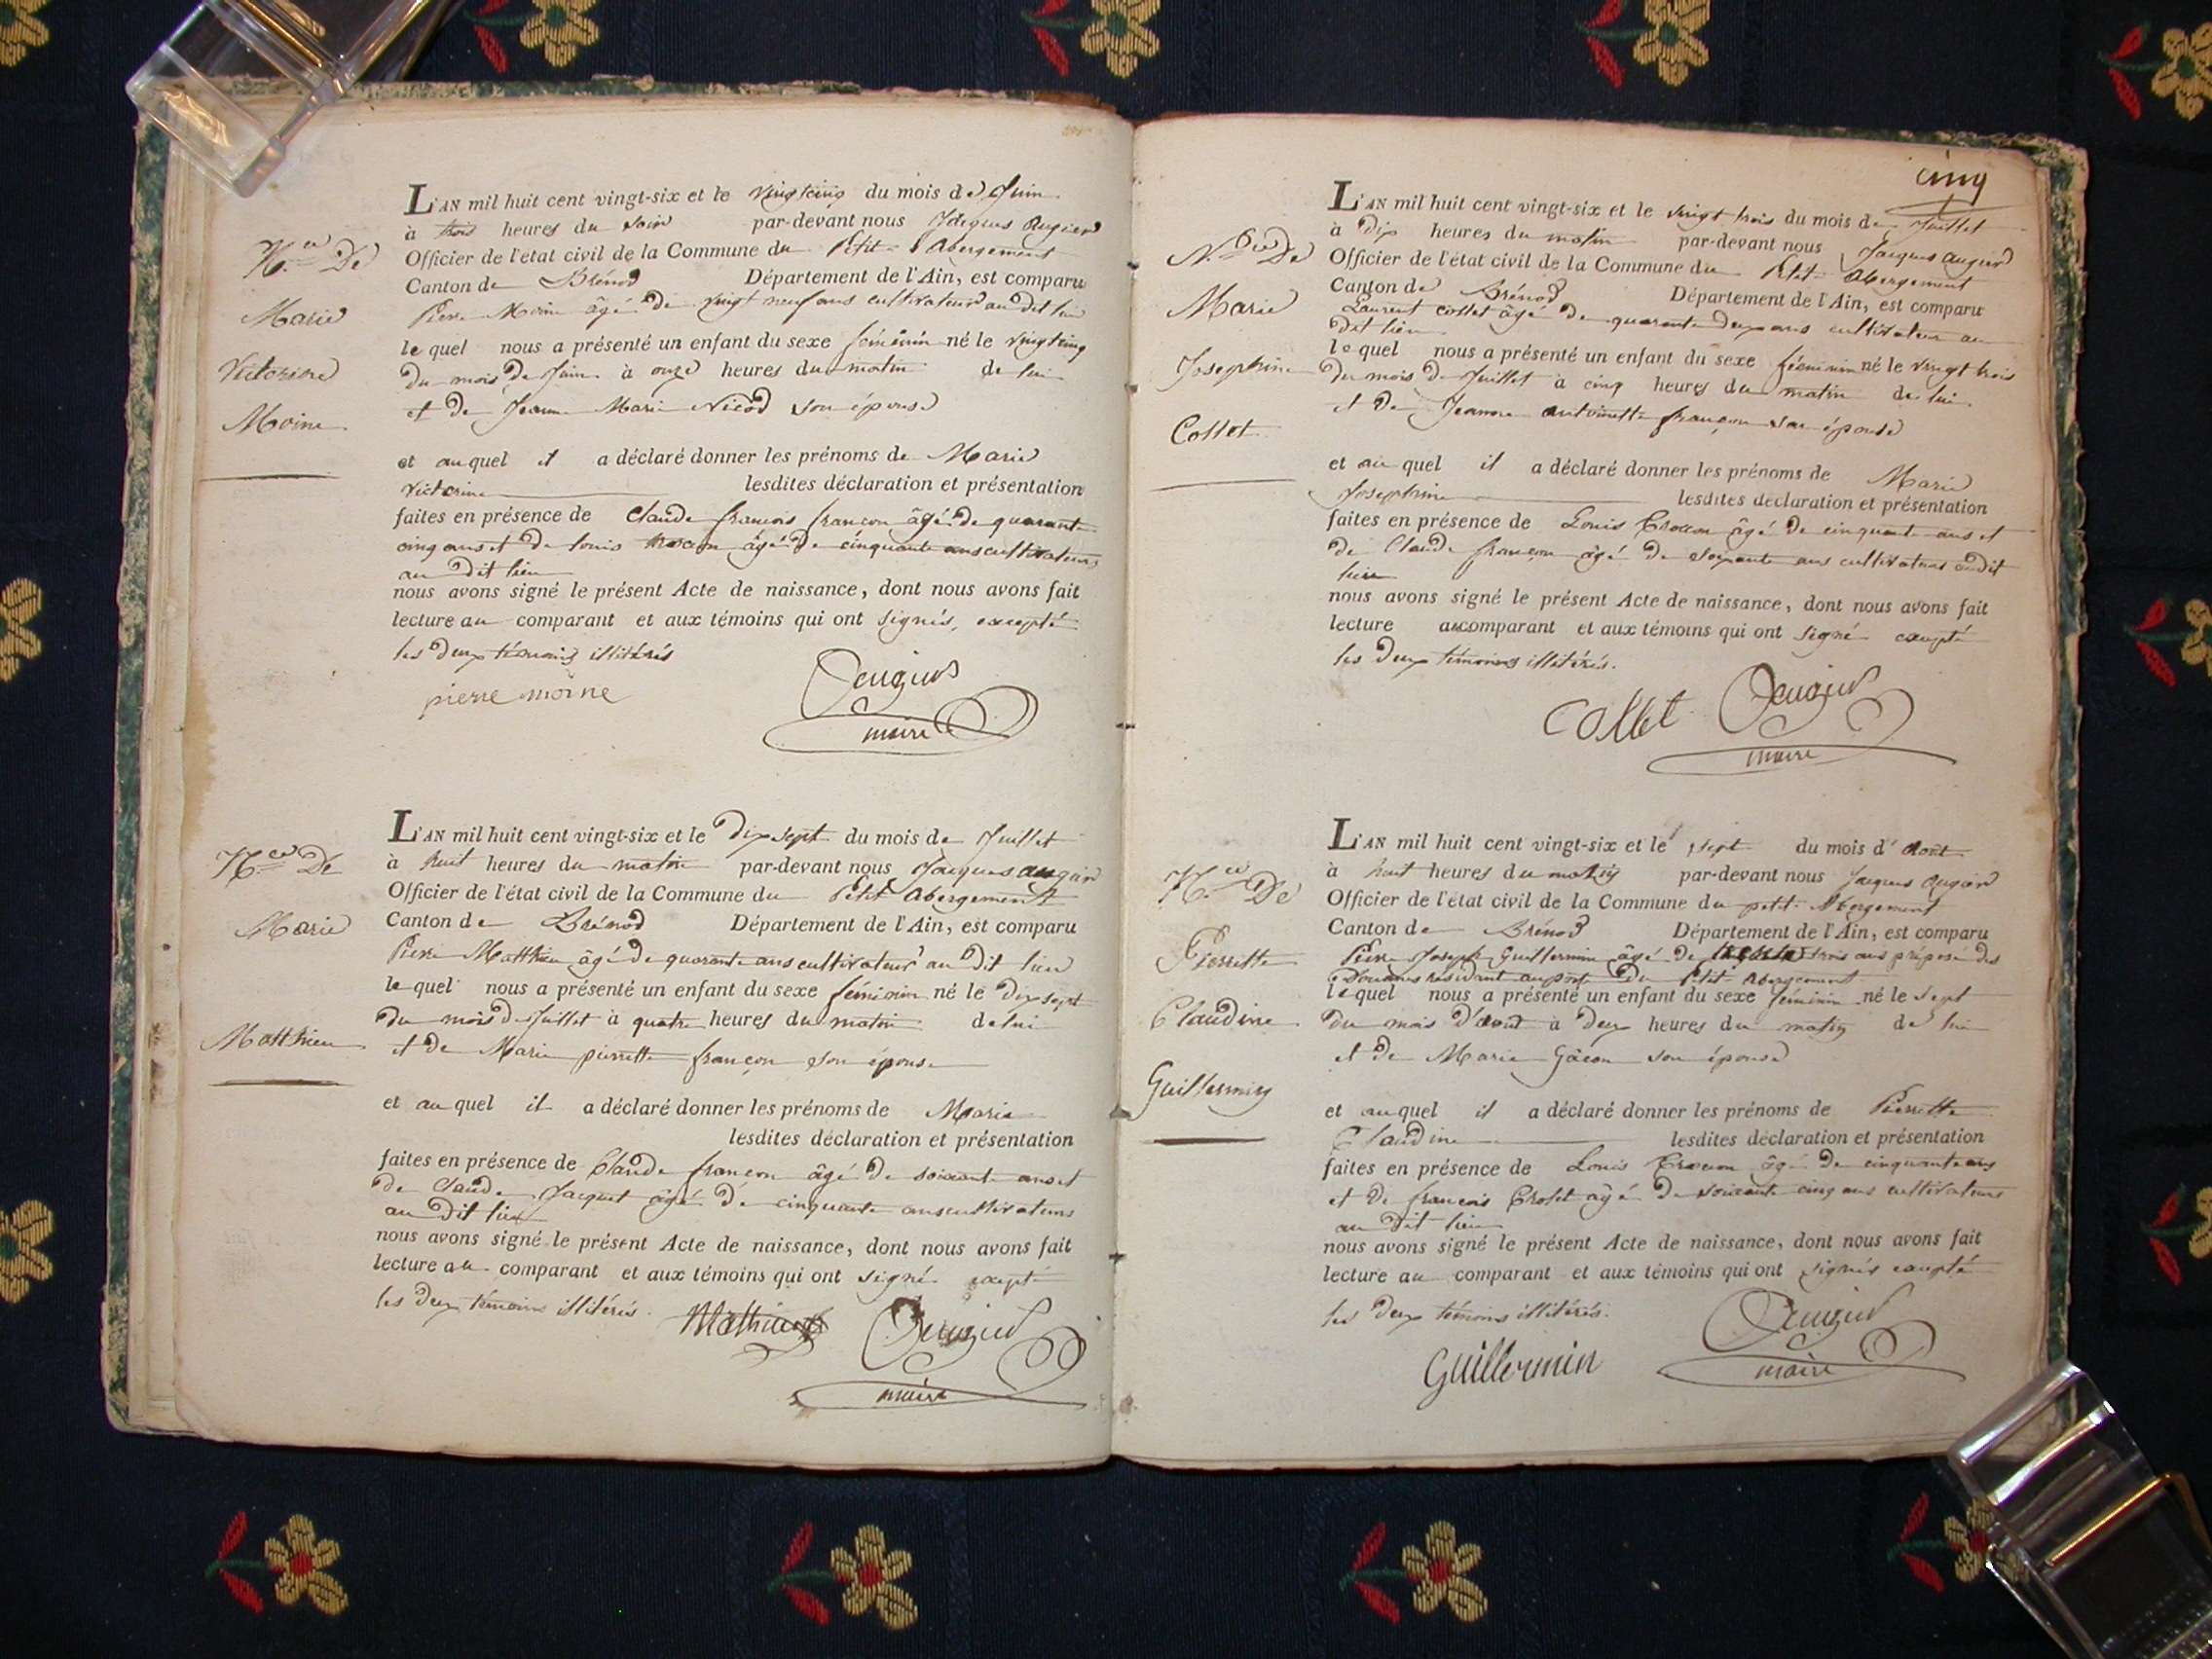 N.ce De
Marie
Victorine
Moine
L'AN mil huit cent vingt-six et le vingt cinq du mois de Juin
à trois heures du soir par-devant nous Jacques augier
Officier de l'état civil de la Commune du Petit-Abergement
Canton de Brénod Département de l'Ain, est comparu
Pierre Moine âgé de vingt neuf ans cultivateur au dit lieu
lequel nous a présenté un enfant du sexe féminin né le vingt cinq
du mois de Juin à onze heures du matin de lui
et de Jeanne Marie Nicod son épouse
et auquel il a déclaré donner les prénoms de Marie
Victorine lesdites déclaration et présentation
faites en présence de Claude françois françon âgé de quarante
cinq ans et de louis âgé de cinquante ans cultivateurs
au dit lieu
nous avons signé le présent Acte de naissance, dont nous avons fait
lecture au comparant et aux témoins qui ont signés, excepté
les deux témoins illitérés
pierre moine
augier
maire
N.ce De
Marie
Matthieu
L'AN mil huit cent vingt-six et le dix sept du mois de Juillet
à huit heures du matin par-devant nous Jacques augier
Officier de l'état civil de la Commune du Petit Abergement
Canton de Brénod Département de l'Ain, est comparu
Pierre Matthieu âgé de quarante ans cultivateur au dit lieu
lequel nous a présenté un enfant du sexe féminin né le dix sept
du mois de Juillet à quatre heures du matin de lui
et de Marie pierrette françon son épouse
et auquel il a déclaré donner les prénoms de Marie
lesdites déclaration et présentation
faites en présence de Claude françon âgé de soixante ans et
de Claude Jacquet âgé de cinquante ans cultivateurs
au dit lieu
nous avons signé le présent Acte de naissance, dont nous avons fait
lecture au comparant et aux témoins qui ont signé excepté
les deux témoins illitérés.
augier
maire
cinq
N.ce De
Marie
Josephine
Collet
L'AN mil huit cent vingt-six et le vingt trois du mois de Juillet
à dix heures du matin par-devant nous Jacques augier
Officier de l'état civil de la Commune du Petit Abergement
Canton de Brénod Département de l'Ain, est comparu
Laurent collet âgé de quarante deux ans cultivateur au
dit lieu
lequel nous a présenté un enfant du sexe féminin né le vingt trois
du mois de Juillet à cinq heures du matin de lui
et de Jeanne antoinette françon sa épouse
et auquel il a déclaré donner les prénoms de Marie
Josephine lesdites déclaration et présentation
faites en présence de Louis âgé de cinquante ans et
de Claude françon âgé de soixante ans cultivateurs audit
lieu
nous avons signé le présent Acte de naissance, dont nous avons fait
lecture au comparant et aux témoins qui ont signé excepté
les deux témoins illitérés.
collet
augier
maire
N.ce De
Pierrette
Claudine
Guillermin
L'AN mil huit cent vingt-six et le sept du mois d'août
à huit heures du matin par-devant nous Jacques augier
Officier de l'état civil de la Commune du petit Abergement
Canton de Brénod Département de l'Ain, est comparu
Pierre Joseph Guillermin âgé de trente trois ans préposé des
Douanes résidant au poste du Petit-Abergement
lequel nous a présenté un enfant du sexe féminin né le sept
du mois d'août à deux heures du matin de lui
et de Marie Gâcon son épouse
et auquel il a déclaré donner les prénoms de Pierrette
Claudine lesdites déclaration et présentation
faites en présence de Louis âgé de cinquante ans
et de françois âgé de soixante cinq ans cultivateurs
au dit lieu
nous avons signé le présent Acte de naissance, dont nous avons fait
lecture au comparant et aux témoins qui ont signés excepté
les deux témoins illitérés.
Guillermin
augier
maire